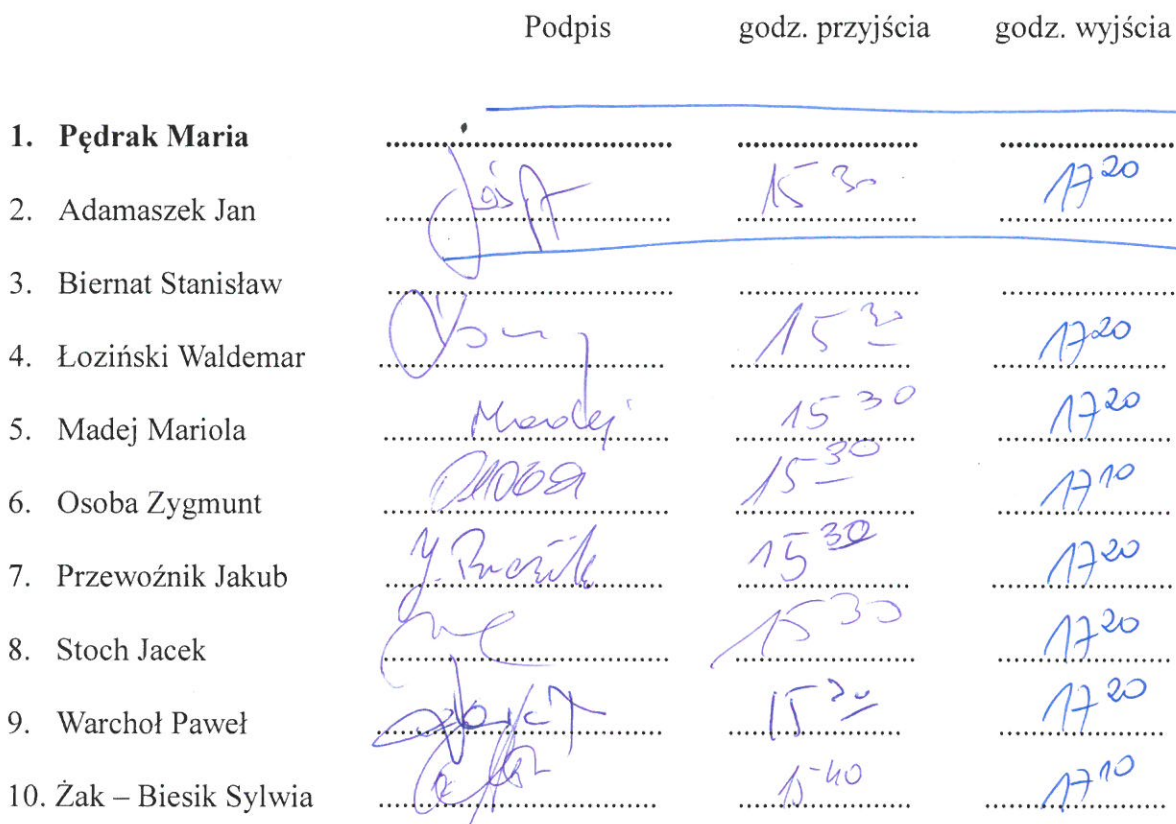 Podpis godz. przyjścia godz. wyjścia
1. Pędrak Maria
2. Adamaszek Jan 15 30 17 20
3. Biernat Stanisław
4. Łoziński Waldemar 15 30 17 20
5. Madej Mariola Madej 15 30 17 20
6. Osoba Zygmunt Osoba 15 30 17 10
7. Przewoźnik Jakub 15 30 17 20
8. Stoch Jacek 15 30 17 20
9. Warchoł Paweł 15 30 17 20
10. Żak – Biesik Sylwia 15 40 17 10